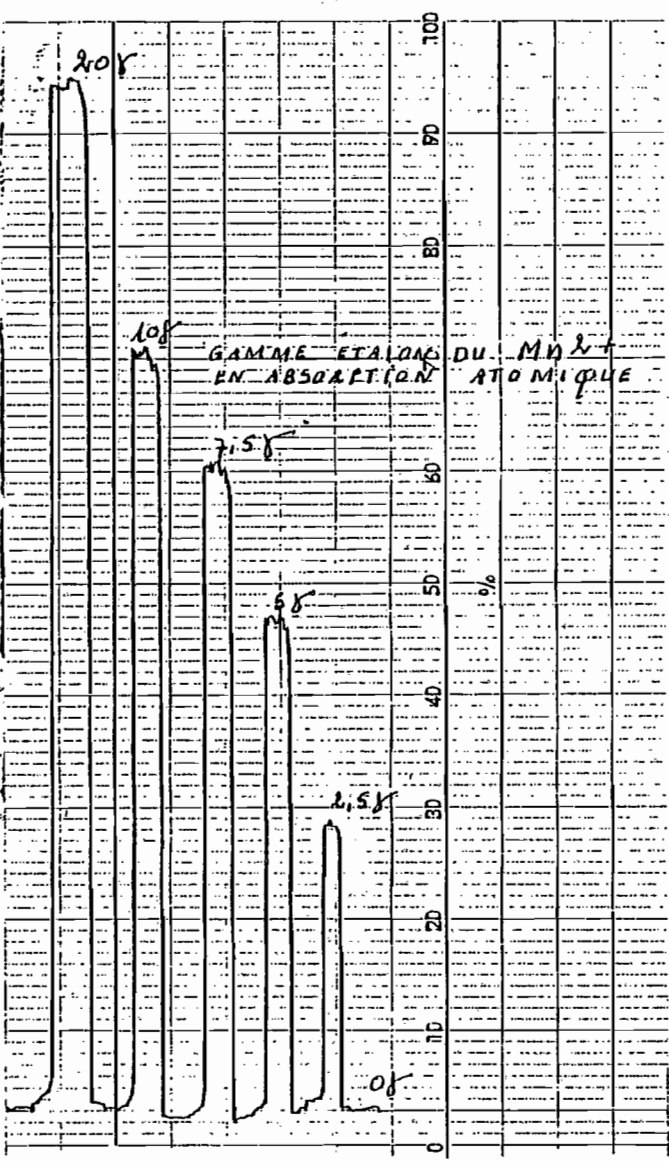 20γ
10γ
GAMME ETALONS DU Mn2+
EN ABSORPTION ATOMIQUE
7,5γ
5γ
2,5γ
0γ
100
90
80
60
50
%
40
30
20
10
0